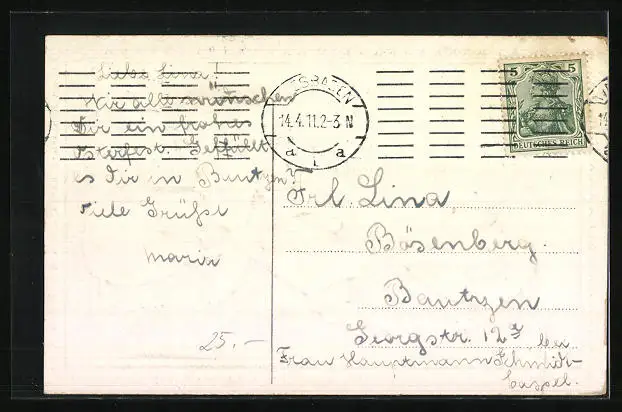 Liebe Lina!
Wir alle wünschen
Dir ein frohes
Osterfest. Gefällt
es Dir in Bautzen?
Viele Grüße
Maria
25.-
SBADEN
14.4.11.2-3 N
5 5
DEUTSCHES REICH
Frl. Lina
Bösenberg.
Bautzen
Georgstr. 12 bei
Frau Hauptmann Schmidt-
Cassel.